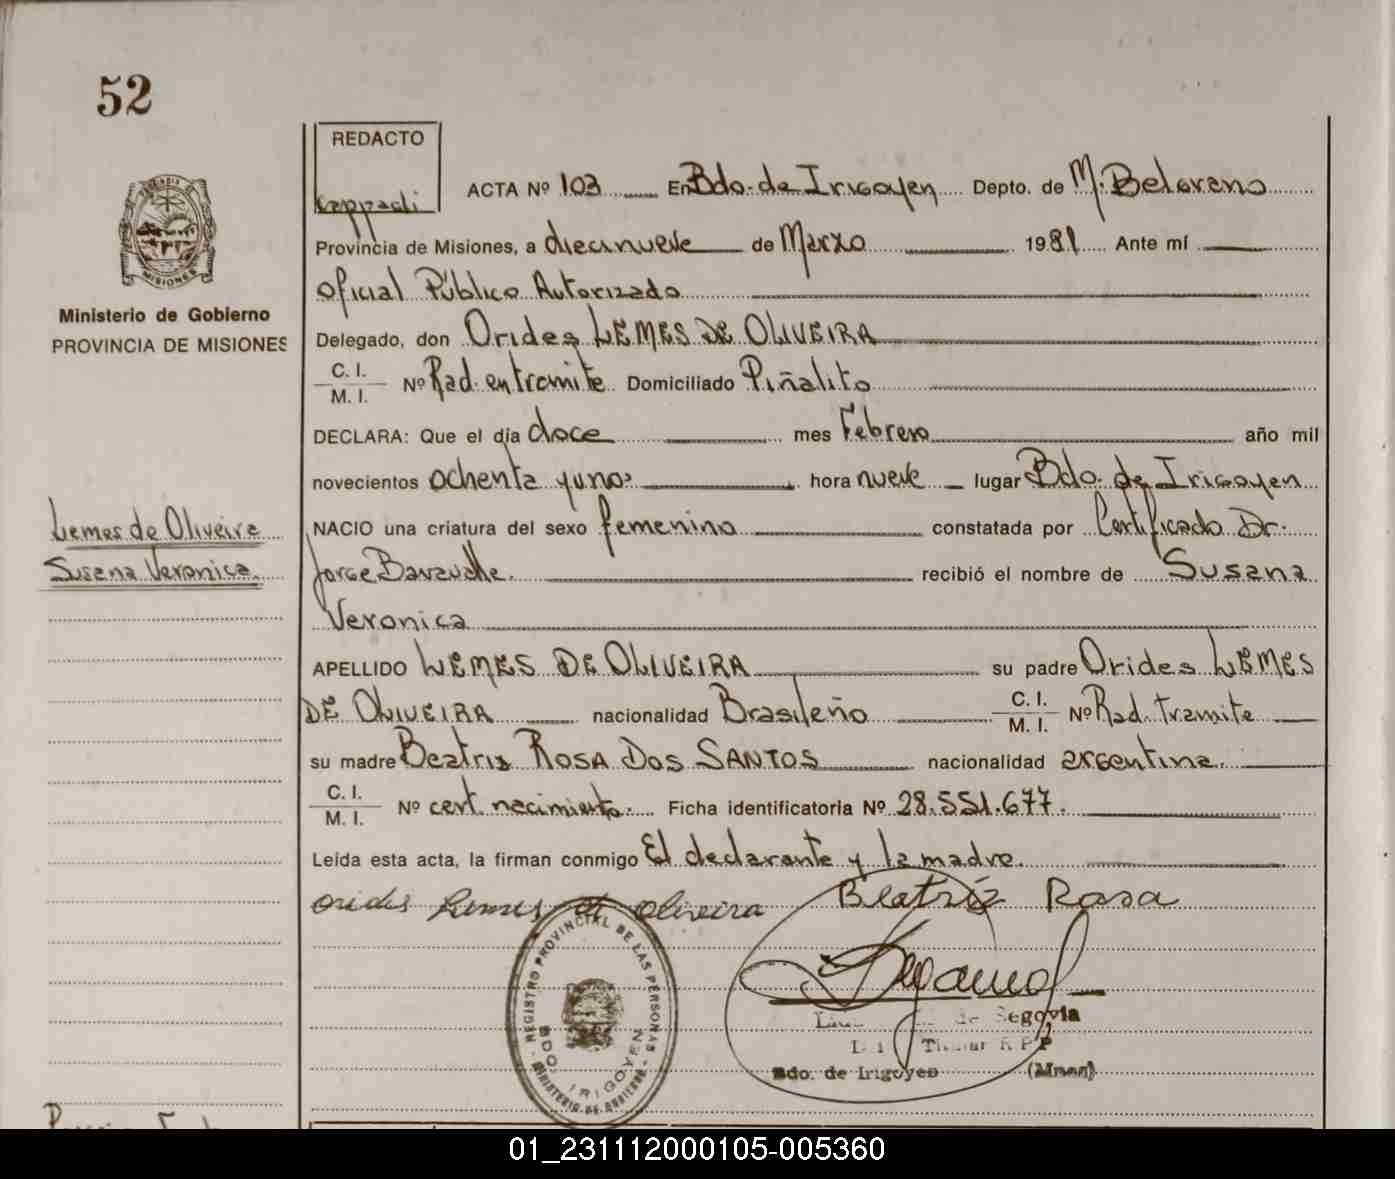 52
REDACTO
ACTA Nº 103 En Bdo. de Irigoyen Depto. de M. Belgrano
Provincia de Misiones, a diecinueve de Marzo 1981 Ante mí
Oficial Público Autorizado
MISIONES
Ministerio de Gobierno
PROVINCIA DE MISIONES
Delegado, don Orides LEMES DE OLIVEIRA
C. I.
M. I. Nº Rad. en tramite Domiciliado Piñalito
DECLARA: Que el día doce mes Febrero año mil
novecientos ochenta y uno hora nueve lugar Bdo. de Irigoyen
Lemes de Oliveira
Susana Veronica
NACIO una criatura del sexo femenino constatada por Certificado Dr.
Jorge recibió el nombre de Susana
Veronica
APELLIDO LEMES DE OLIVEIRA su padre Orides LEMES
DE OLIVEIRA nacionalidad Brasileño C. I.
M. I. Nº Rad. tramite
su madre Beatris ROSA DOS SANTOS nacionalidad argentina.
C. I.
M. I. Nº cert. nacimiento. Ficha identificatoria Nº 28.551.677.
Leída esta acta, la firman conmigo El declarante y la madre.
orides Lemes de oliveira Beatriz Rosa
REGISTRO PROVINCIAL DE LAS PERSONAS
BDO. IRIGOYEN
MINISTERIO DE GOBIERNO
de Segovia
Titular R P P
Bdo. de Irigoyen (Mnes)
01_231112000105-005360